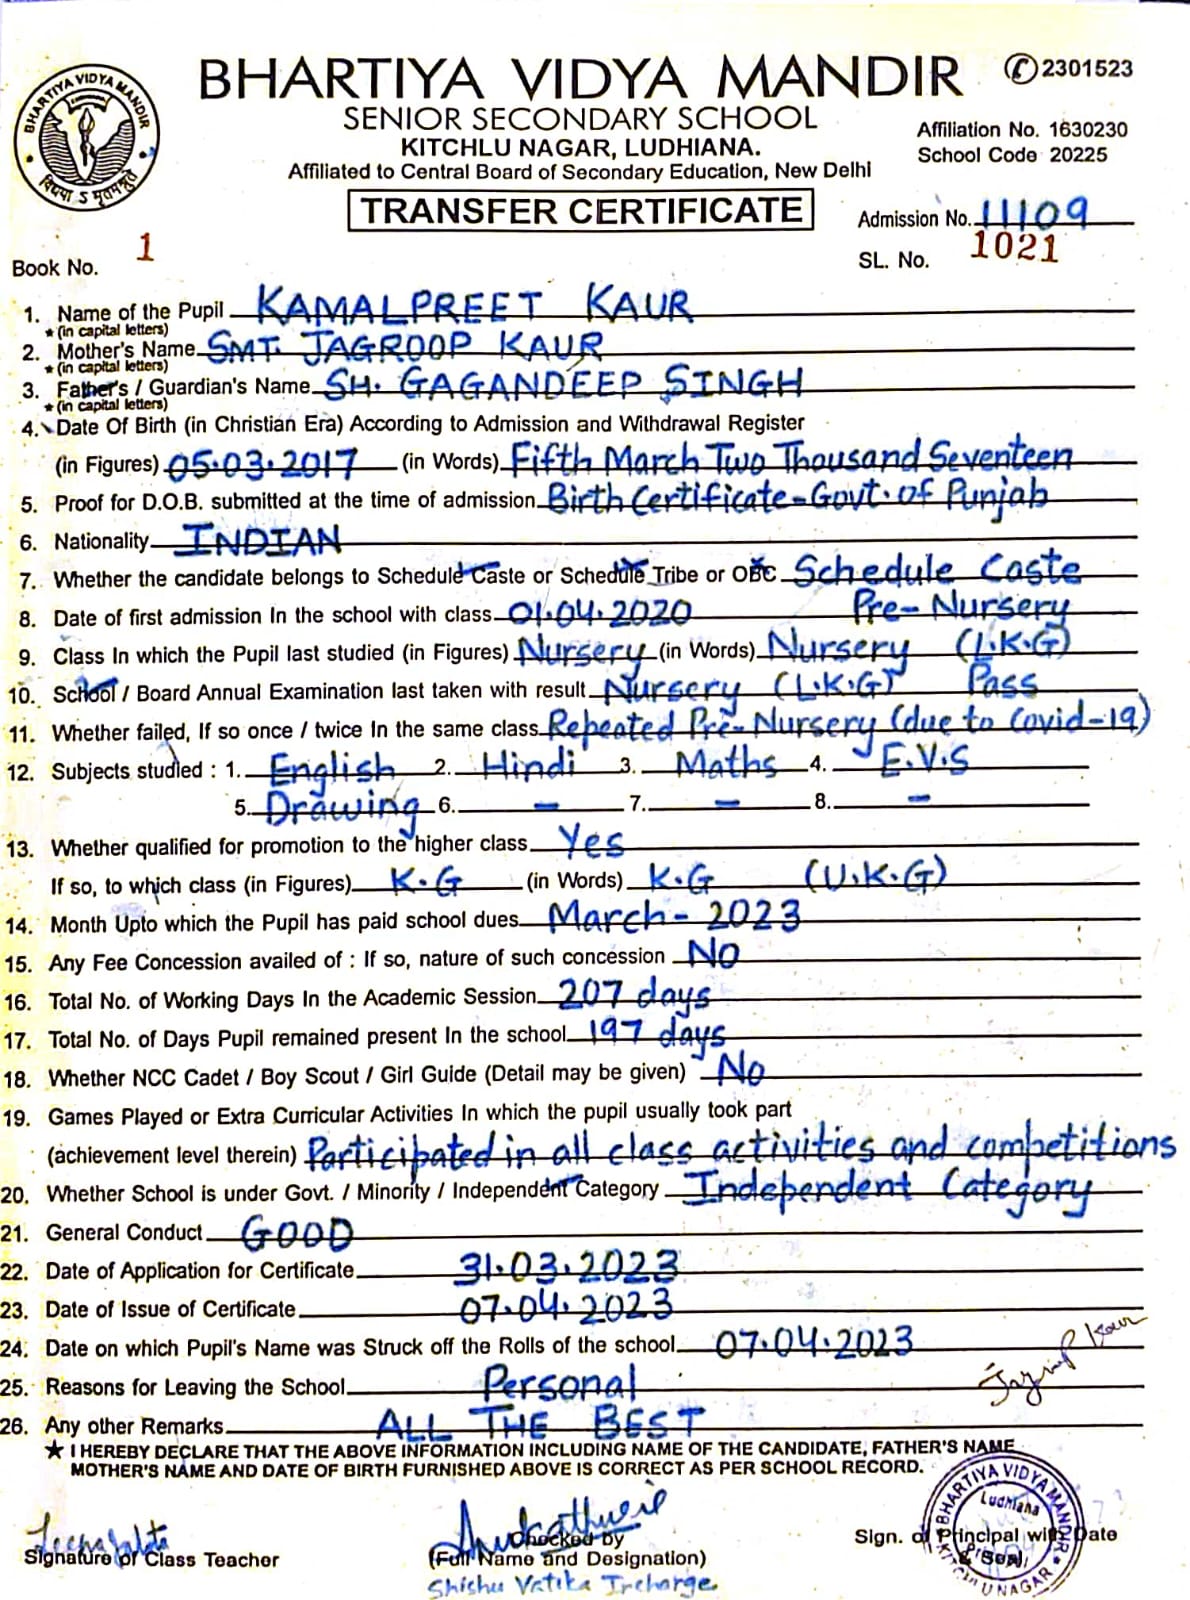 BHARTIYA VIDYA MANDIR
BHARTIYA VIDYA MANDIR
2301523
SENIOR SECONDARY SCHOOL
KITCHLU NAGAR, LUDHIANA.
Affiliated to Central Board of Secondary Education, New Delhi
Affiliation No. 1630230
School Code 20225
TRANSFER CERTIFICATE
Admission No. 11109
Book No. 1
SL. No. 1021
1. Name of the Pupil KAMALPREET KAUR
★ (in capital letters)
2. Mother's Name SMT. JAGROOP KAUR
★ (in capital letters)
3. Father's / Guardian's Name SH. GAGANDEEP SINGH
★ (in capital letters)
4. Date Of Birth (in Christian Era) According to Admission and Withdrawal Register
(in Figures) 05.03.2017 (in Words) Fifth March Two Thousand Seventeen
5. Proof for D.O.B. submitted at the time of admission Birth Certificate-Govt. of Punjab
6. Nationality INDIAN
7. Whether the candidate belongs to Schedule Caste or Schedule Tribe or OBC Schedule Caste
8. Date of first admission In the school with class 01.04.2020 Pre-Nursery
9. Class In which the Pupil last studied (in Figures) Nursery (in Words) Nursery (L.K.G)
10. School / Board Annual Examination last taken with result Nursery (L.K.G) Pass
11. Whether failed, If so once / twice In the same class Repeated Pre-Nursery (due to Covid-19)
12. Subjects studied : 1. English 2. Hindi 3. Maths 4. E.V.S
5. Drawing 6. - 7. - 8. -
13. Whether qualified for promotion to the higher class Yes
If so, to which class (in Figures) K.G (in Words) K.G (U.K.G)
14. Month Upto which the Pupil has paid school dues March - 2023
15. Any Fee Concession availed of : If so, nature of such concession No
16. Total No. of Working Days In the Academic Session 207 days
17. Total No. of Days Pupil remained present In the school 197 days
18. Whether NCC Cadet / Boy Scout / Girl Guide (Detail may be given) No
19. Games Played or Extra Curricular Activities In which the pupil usually took part
(achievement level therein) Participated in all class activities and competitions
20. Whether School is under Govt. / Minority / Independent Category Independent Category
21. General Conduct GOOD
22. Date of Application for Certificate 31.03.2023
23. Date of Issue of Certificate 07.04.2023
24. Date on which Pupil's Name was Struck off the Rolls of the school 07.04.2023
25. Reasons for Leaving the School Personal
26. Any other Remarks ALL THE BEST
★ I HEREBY DECLARE THAT THE ABOVE INFORMATION INCLUDING NAME OF THE CANDIDATE, FATHER'S NAME
MOTHER'S NAME AND DATE OF BIRTH FURNISHED ABOVE IS CORRECT AS PER SCHOOL RECORD.
BHARTIYA VIDYA MANDIR
Ludhiana
Signature of Class Teacher
Checked by
(Full Name and Designation)
Shishu Vatika Incharge
Sign. of Principal with Date
& Seal